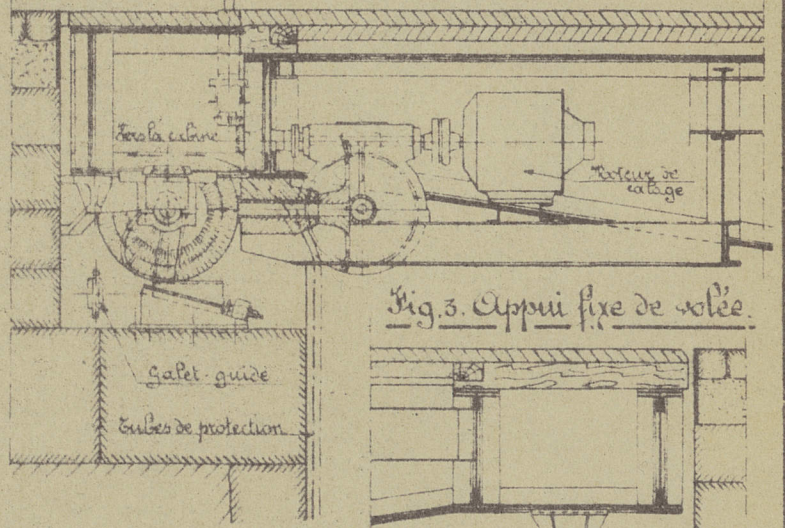 Vers la cabine
Moteur de
calage
Fig. 3. Appui fixe de volée.
Galet-guide
Tubes de protection